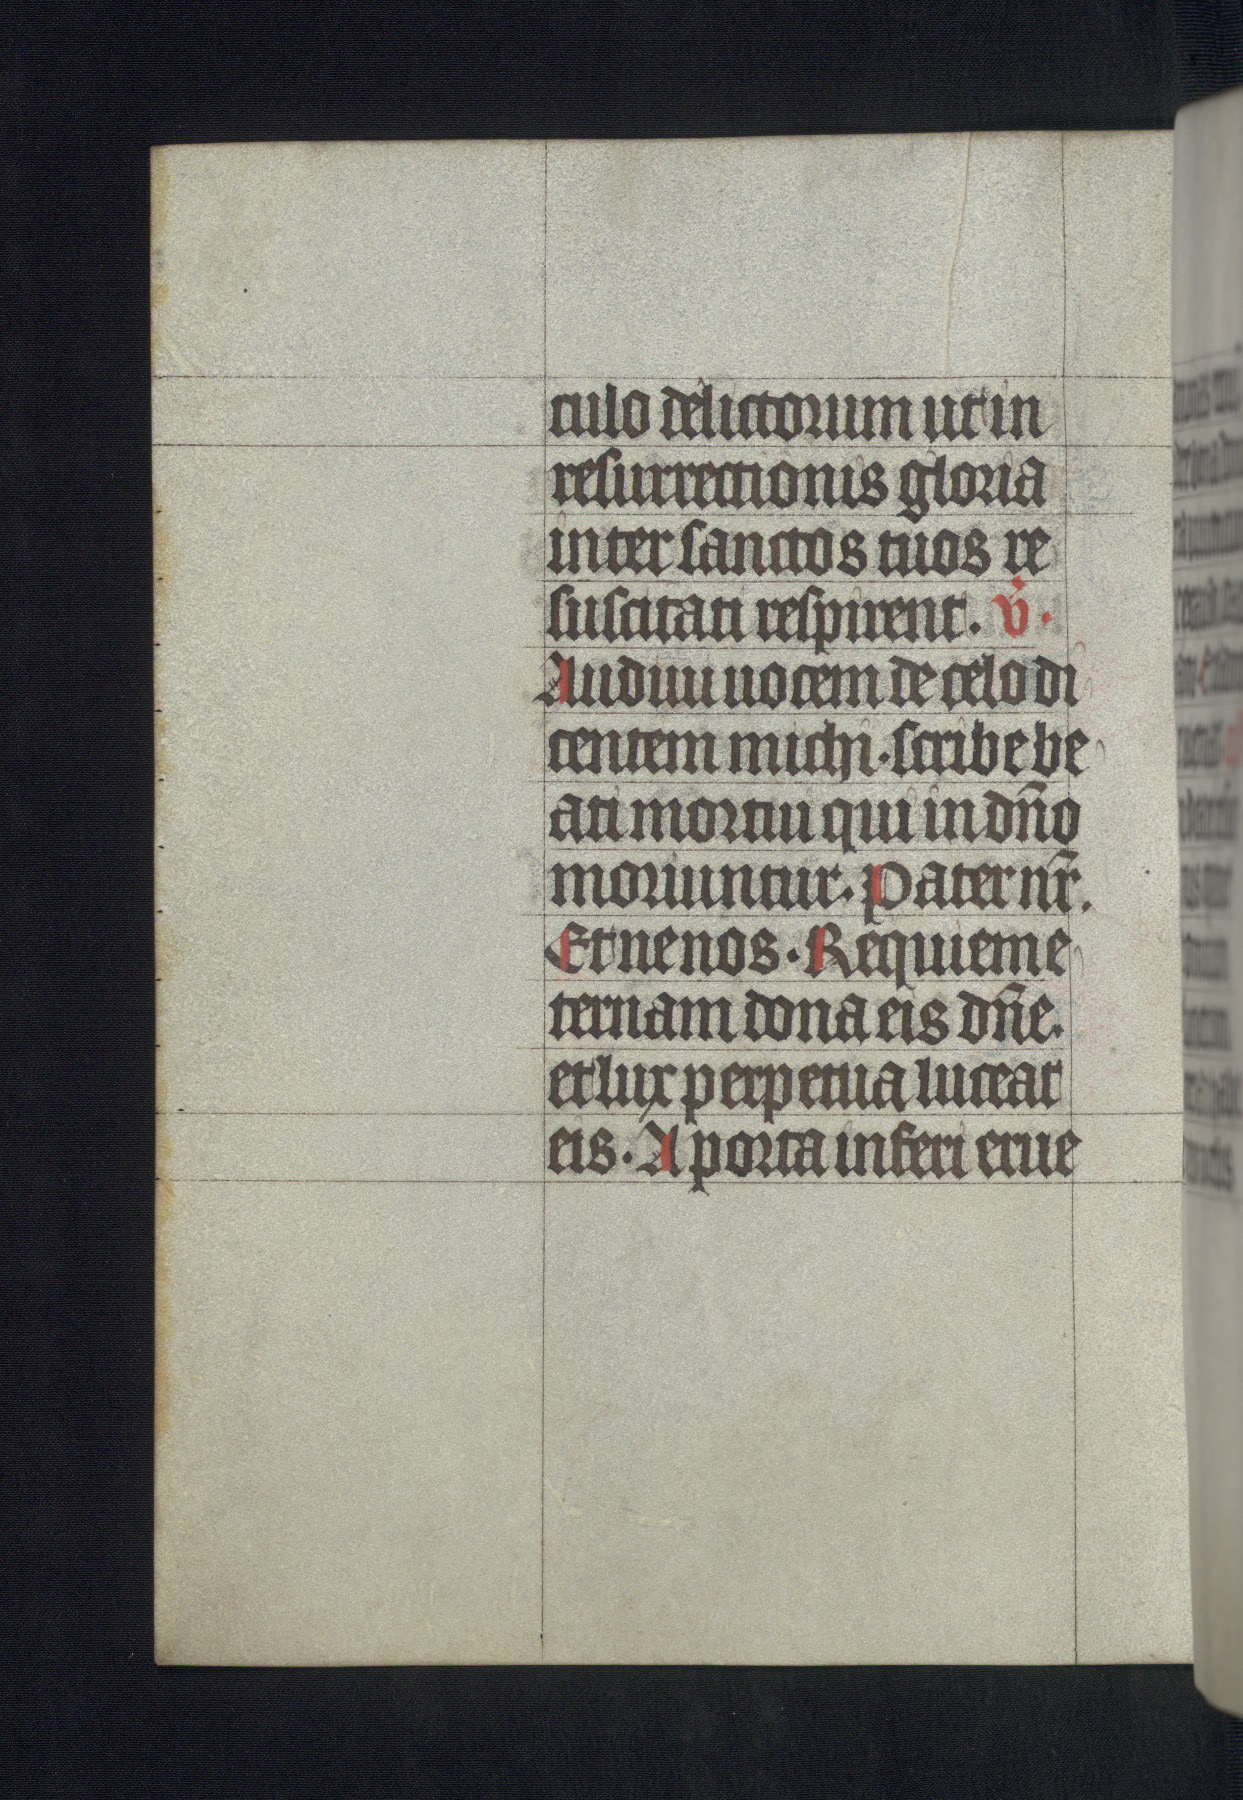 culo delictorum ut in
resurrectionis gloria
inter sanctos tuos re
suscitati respirent. v̄.
Audiui uocem de celo di
centem michi. scribe be
ati mortui qui in dn̄o
moriuntur. Pater nr̄.
Et ne nos. Requiem e
ternam dona eis dn̄e.
et lux perpetua luceat
eis. A porta inferi erue